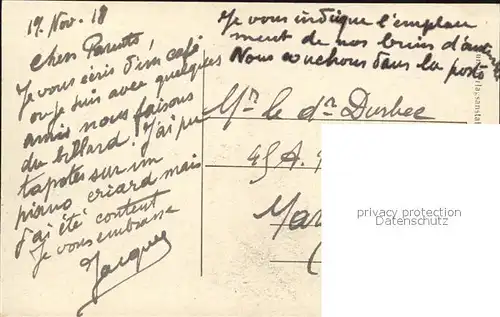 19. Nov. 18
Chers Parents,
Je vous écris d'un café
ou je suis avec quelques
amis nous faisons
du billard. J'ai pu
tapoter sur un
piano criard mais
j'ai été content
Je vous embrasse
Jacques
Je vous indique l'emplace
ment de nos
Nous couchons dans la poste
Mr le dr Durbec
45 A.
Mar
privacy protection
Datenschutz